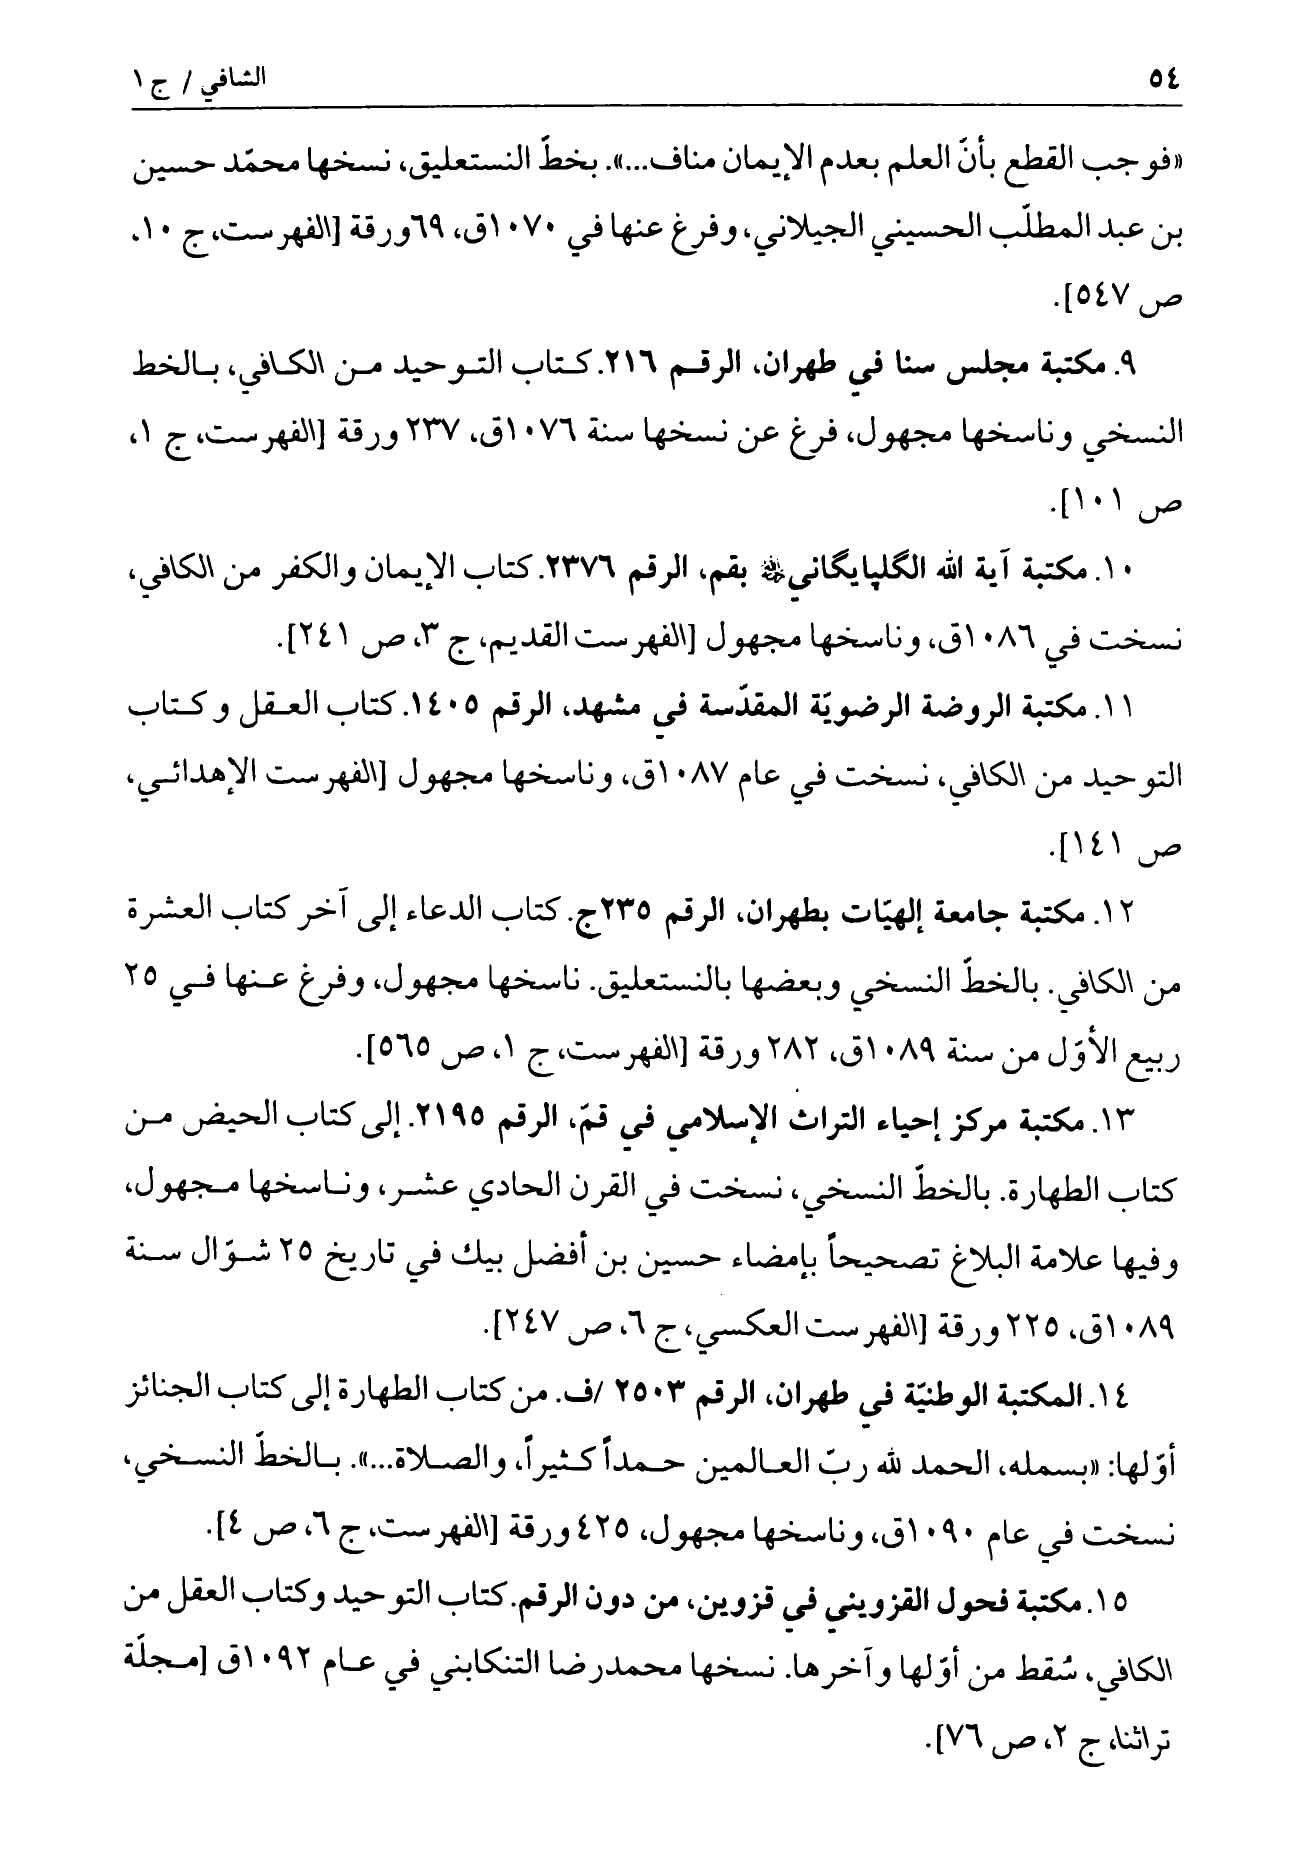 ٥٤ الشافي / ج ١
«فوجب القطع بأنّ العلم بعدم الإيمان مناف...». بخطّ النستعليق، نسخها محمّد حسين
بن عبد المطلّب الحسيني الجيلاني، وفرغ عنها في ١٠٧٠ق، ٦٩ورقة [الفهرست، ج ١٠،
ص ٥٤٧].
٩. مكتبة مجلس سنا في طهران، الرقم ٢١٦. كتاب التوحيد من الكافي، بالخط
النسخي وناسخها مجهول، فرغ عن نسخها سنة ١٠٧٦ق، ٢٣٧ ورقة [الفهرست، ج ١،
ص ١٠١].
١٠. مكتبة آية الله الگلپايگاني بقم، الرقم ٢٣٧٦. كتاب الإيمان والكفر من الكافي،
نسخت في ١٠٨٦ق، وناسخها مجهول [الفهرست القديم، ج ٣، ص ٢٤١].
١١. مكتبة الروضة الرضويّة المقدّسة في مشهد، الرقم ١٤٠٥. كتاب العقل وكتاب
التوحيد من الكافي، نسخت في عام ١٠٨٧ق، وناسخها مجهول [الفهرست الإهدائي،
ص ١٤١].
١٢. مكتبة جامعة إلهيّات بطهران، الرقم ٢٣٥ج. كتاب الدعاء إلى آخر كتاب العشرة
من الكافي. بالخطّ النسخي وبعضها بالنستعليق. ناسخها مجهول، وفرغ عنها في ٢٥
ربيع الأوّل من سنة ١٠٨٩ق، ٢٨٢ ورقة [الفهرست، ج ١، ص ٥٦٥].
١٣. مكتبة مركز إحياء التراث الإسلامي في قمّ، الرقم ٢١٩٥. إلى كتاب الحيض من
كتاب الطهارة. بالخطّ النسخي، نسخت في القرن الحادي عشر، وناسخها مجهول،
وفيها علامة البلاغ تصحيحاً بإمضاء حسين بن أفضل بيك في تاريخ ٢٥ شوّال سنة
١٠٨٩ق، ٢٢٥ ورقة [الفهرست العكسي، ج ٦، ص ٢٤٧].
١٤. المكتبة الوطنيّة في طهران، الرقم ٢٥٠٣ /ف. من كتاب الطهارة إلى كتاب الجنائز
أوّلها: «بسمله، الحمد لله ربّ العالمين حمداً كثيراً، والصلاة...». بالخطّ النسخي،
نسخت في عام ١٠٩٠ق، وناسخها مجهول، ٤٢٥ ورقة [الفهرست، ج ٦، ص ٤].
١٥. مكتبة فحول القزويني في قزوين، من دون الرقم. كتاب التوحيد وكتاب العقل من
الكافي، سُقط من أوّلها وآخرها. نسخها محمدرضا التنكابني في عام ١٠٩٢ق [مجلّة
تراثنا، ج ٢، ص ٧٦].